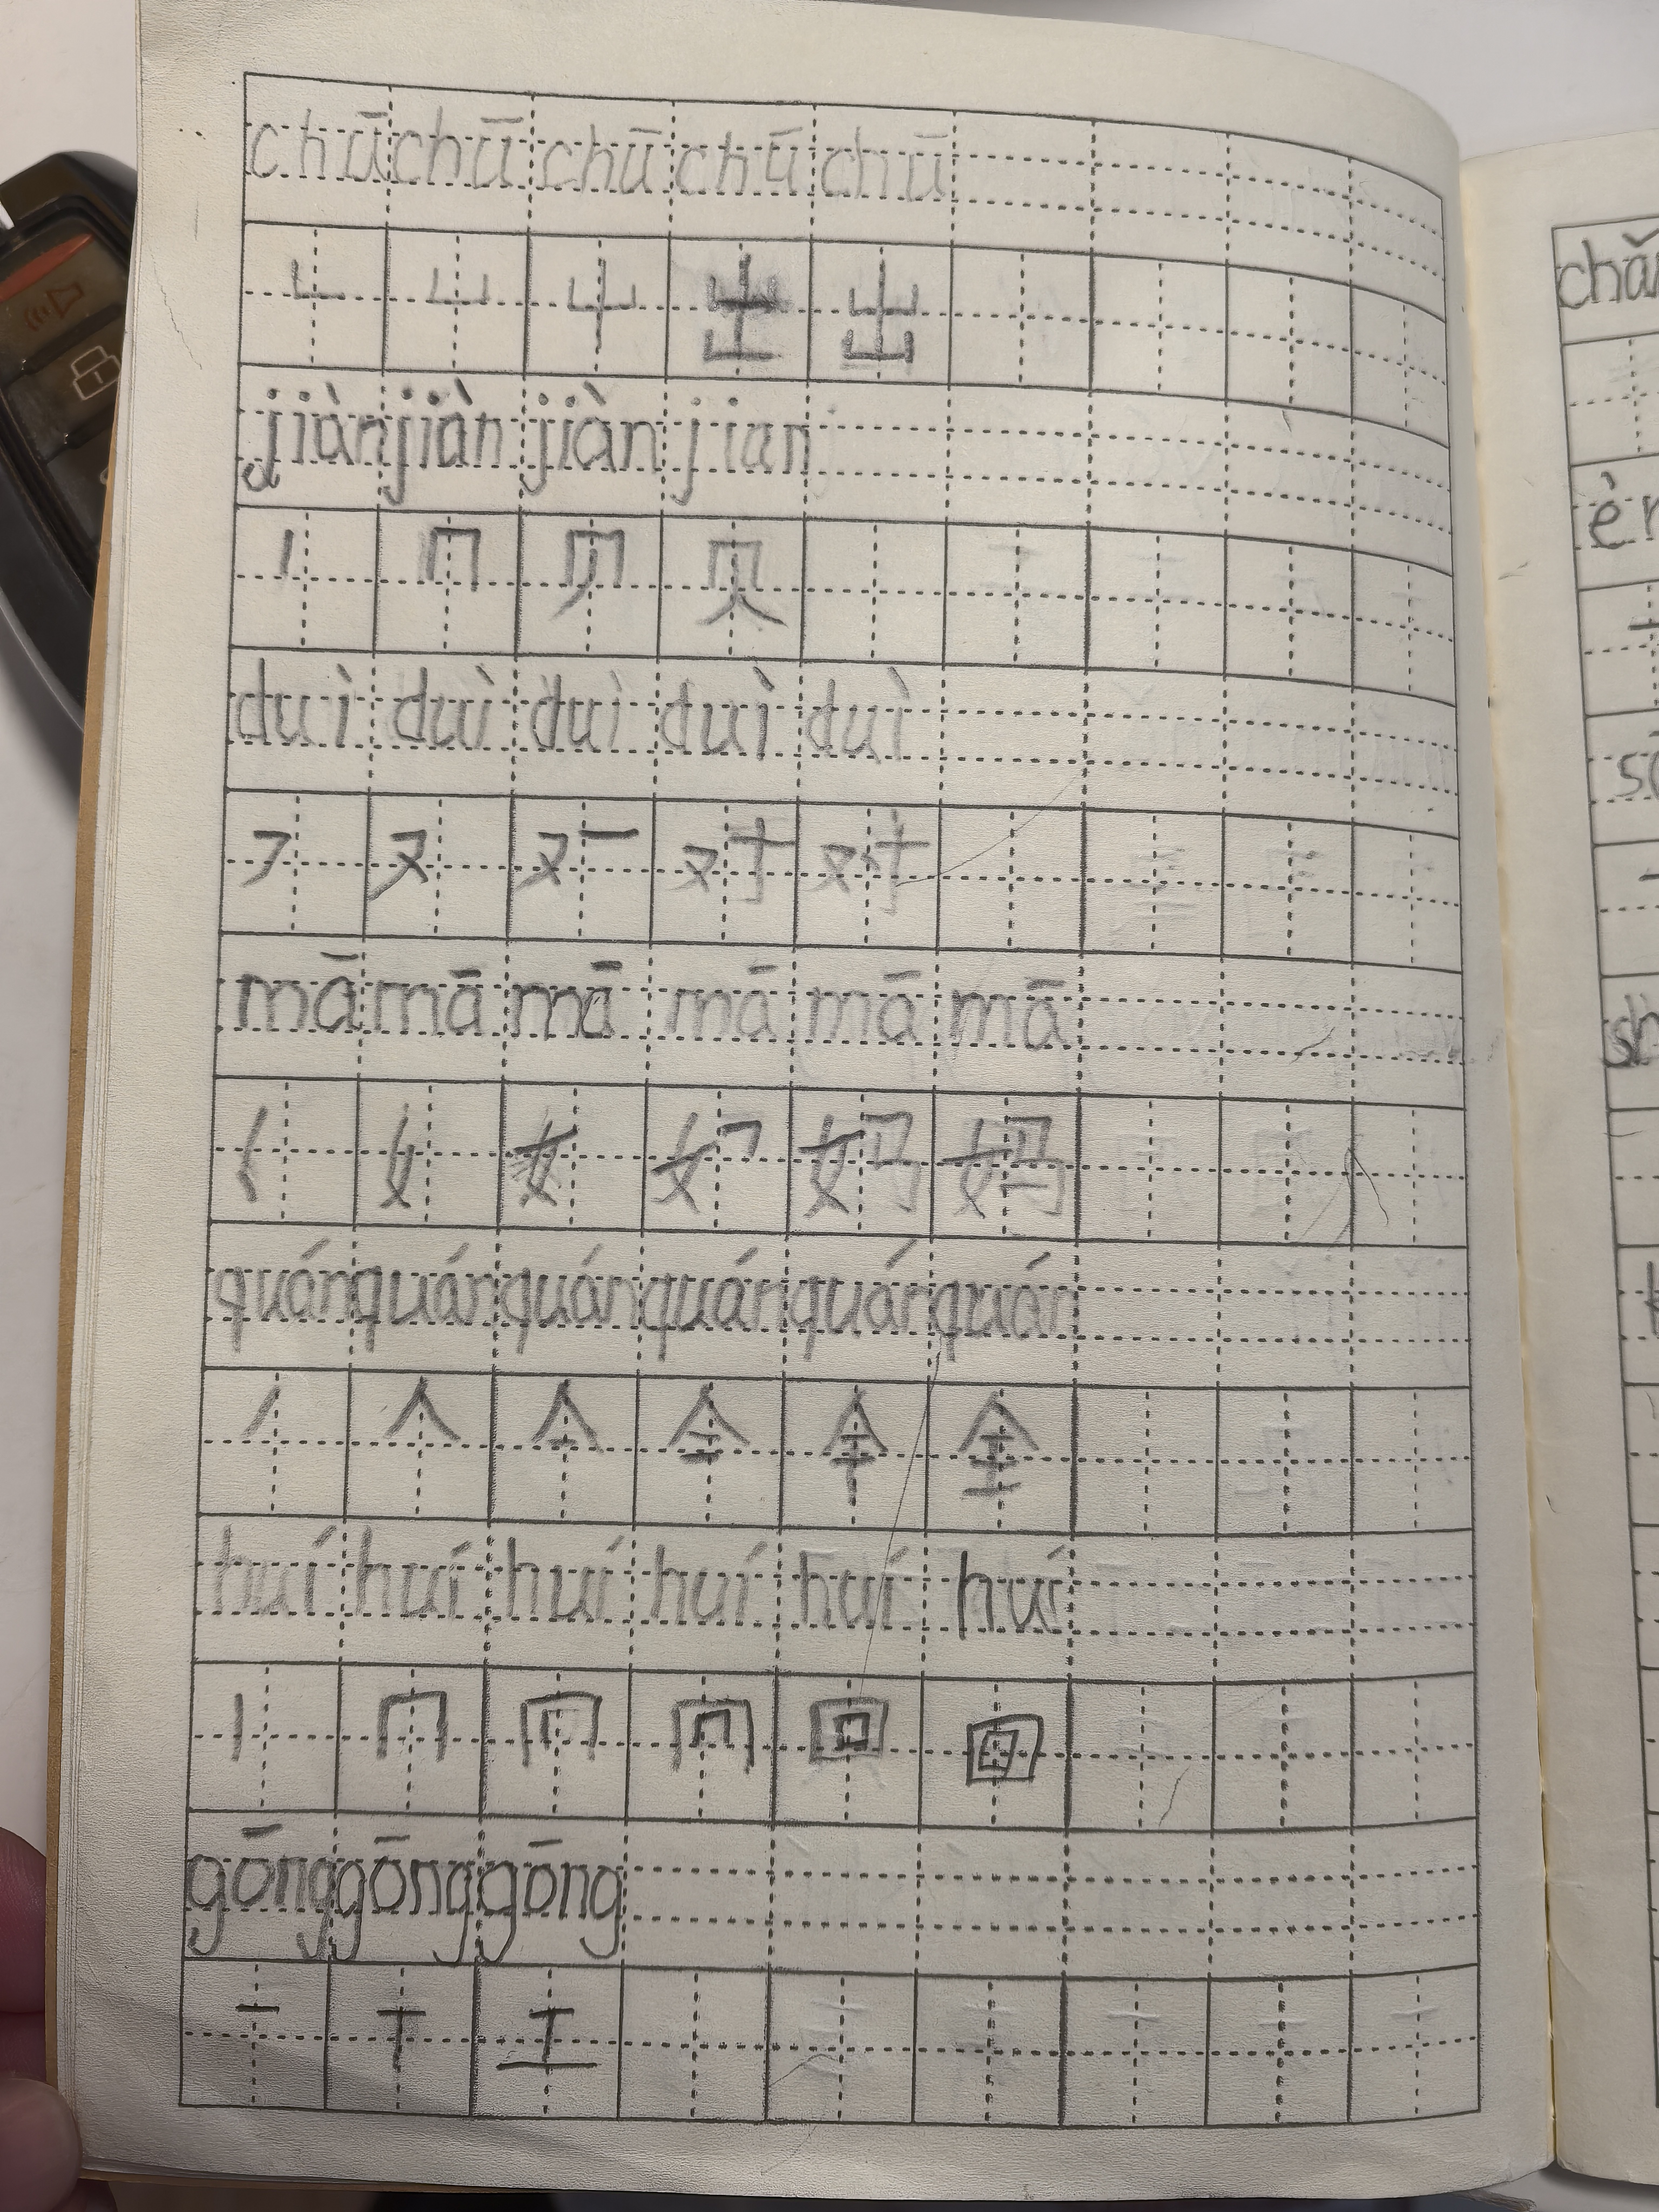 chū chū chū chū chū
凵 屮 出 出
jiàn jiàn jiàn jian
丨 冂 贝
duì duì duì duì duì
又 对 对
mā mā mā mā mā mā
女 妈 妈
quán quán quán quán quán quán
丿 人 亼 全
huí huí huí huí huí huí
丨 冂 回 回
gōng gōng gōng
一 丅 工